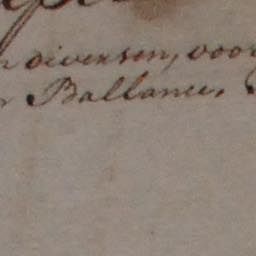 diversen, voor
Ballance.